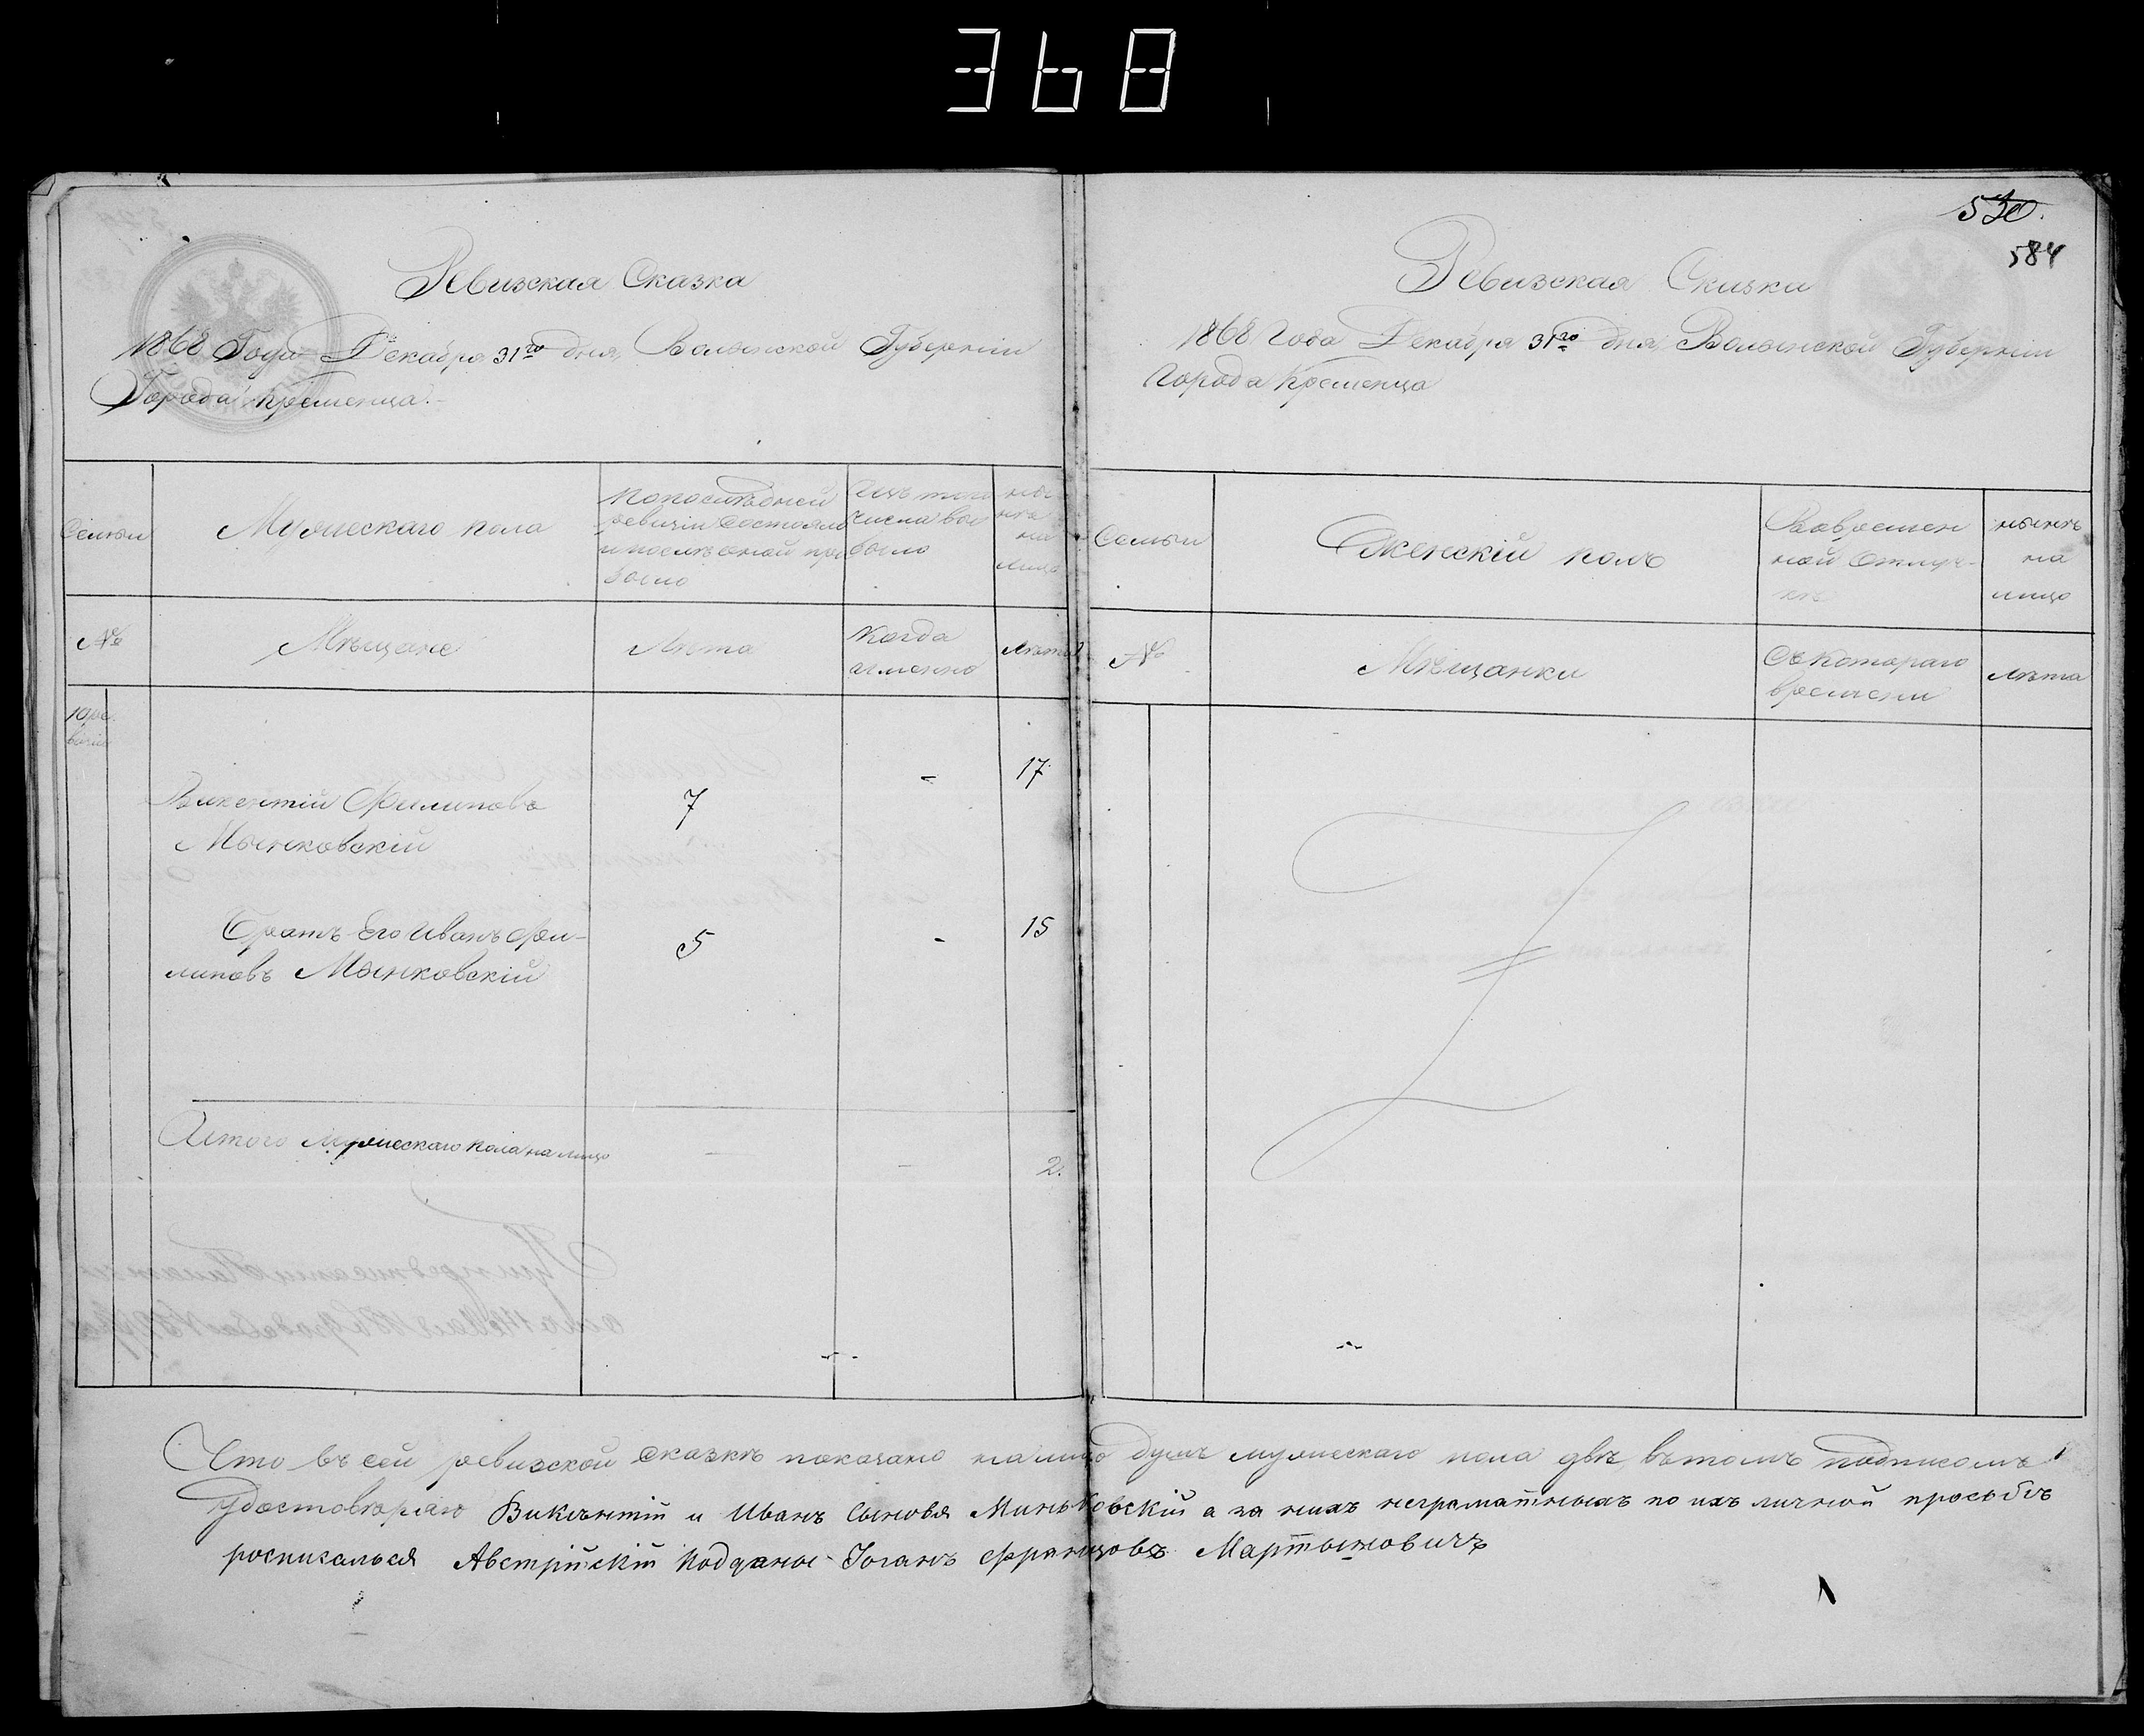 368
530.
584
Ревизская Сказка
1868 Года Декабря 31го дня, Волынской Губерніи
Города Кременца.
Семьи
Мужескаго пола
По последней
ревизіи состояло
и после оной при
было
Изъ того
числа вы
было
ны
не
на
лицо
№
Мѣщане
Лѣта
Когда
именно
Лѣта
10 ре
визіи
Викентій Филиповъ
Мынковскій
7
-
17
Братъ Его Иванъ Фи-
липовъ Мынковскій
5
-
15
Итого мужескаго пола на лицо
-
-
2.
Ревизская Сказка
1868 Года Декабря 31го дня Волынской Губерніи
Города Кременца
Семьи
Женскій полъ
Во времен
ной отлуч-
кѣ
нынѣ
на
лицо
№
Мѣщанки
Съ котораго
времени
Лѣта
Что въ сей ревизской сказкѣ показано на лицо душъ мужескаго пола двѣ, въ томъ подписомъ
Удостовѣряю Викънтій и Иванъ Сыновя Миньковскій а за нихъ неграматныхъ по ихъ личной просьбѣ
росписалься Австрійскій Подданы Іоганъ Францовъ Мартыновичъ